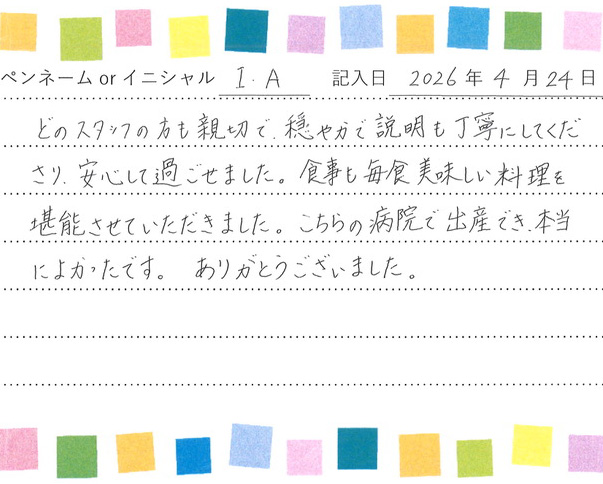 ペンネーム or イニシャル I.A 記入日 2026年4月24日
どのスタッフの方も親切で、穏やかで説明も丁寧にしてくだ
さり、安心して過ごせました。食事も毎食美味しい料理を
堪能させていただきました。こちらの病院で出産でき、本当
によかったです。 ありがとうございました。